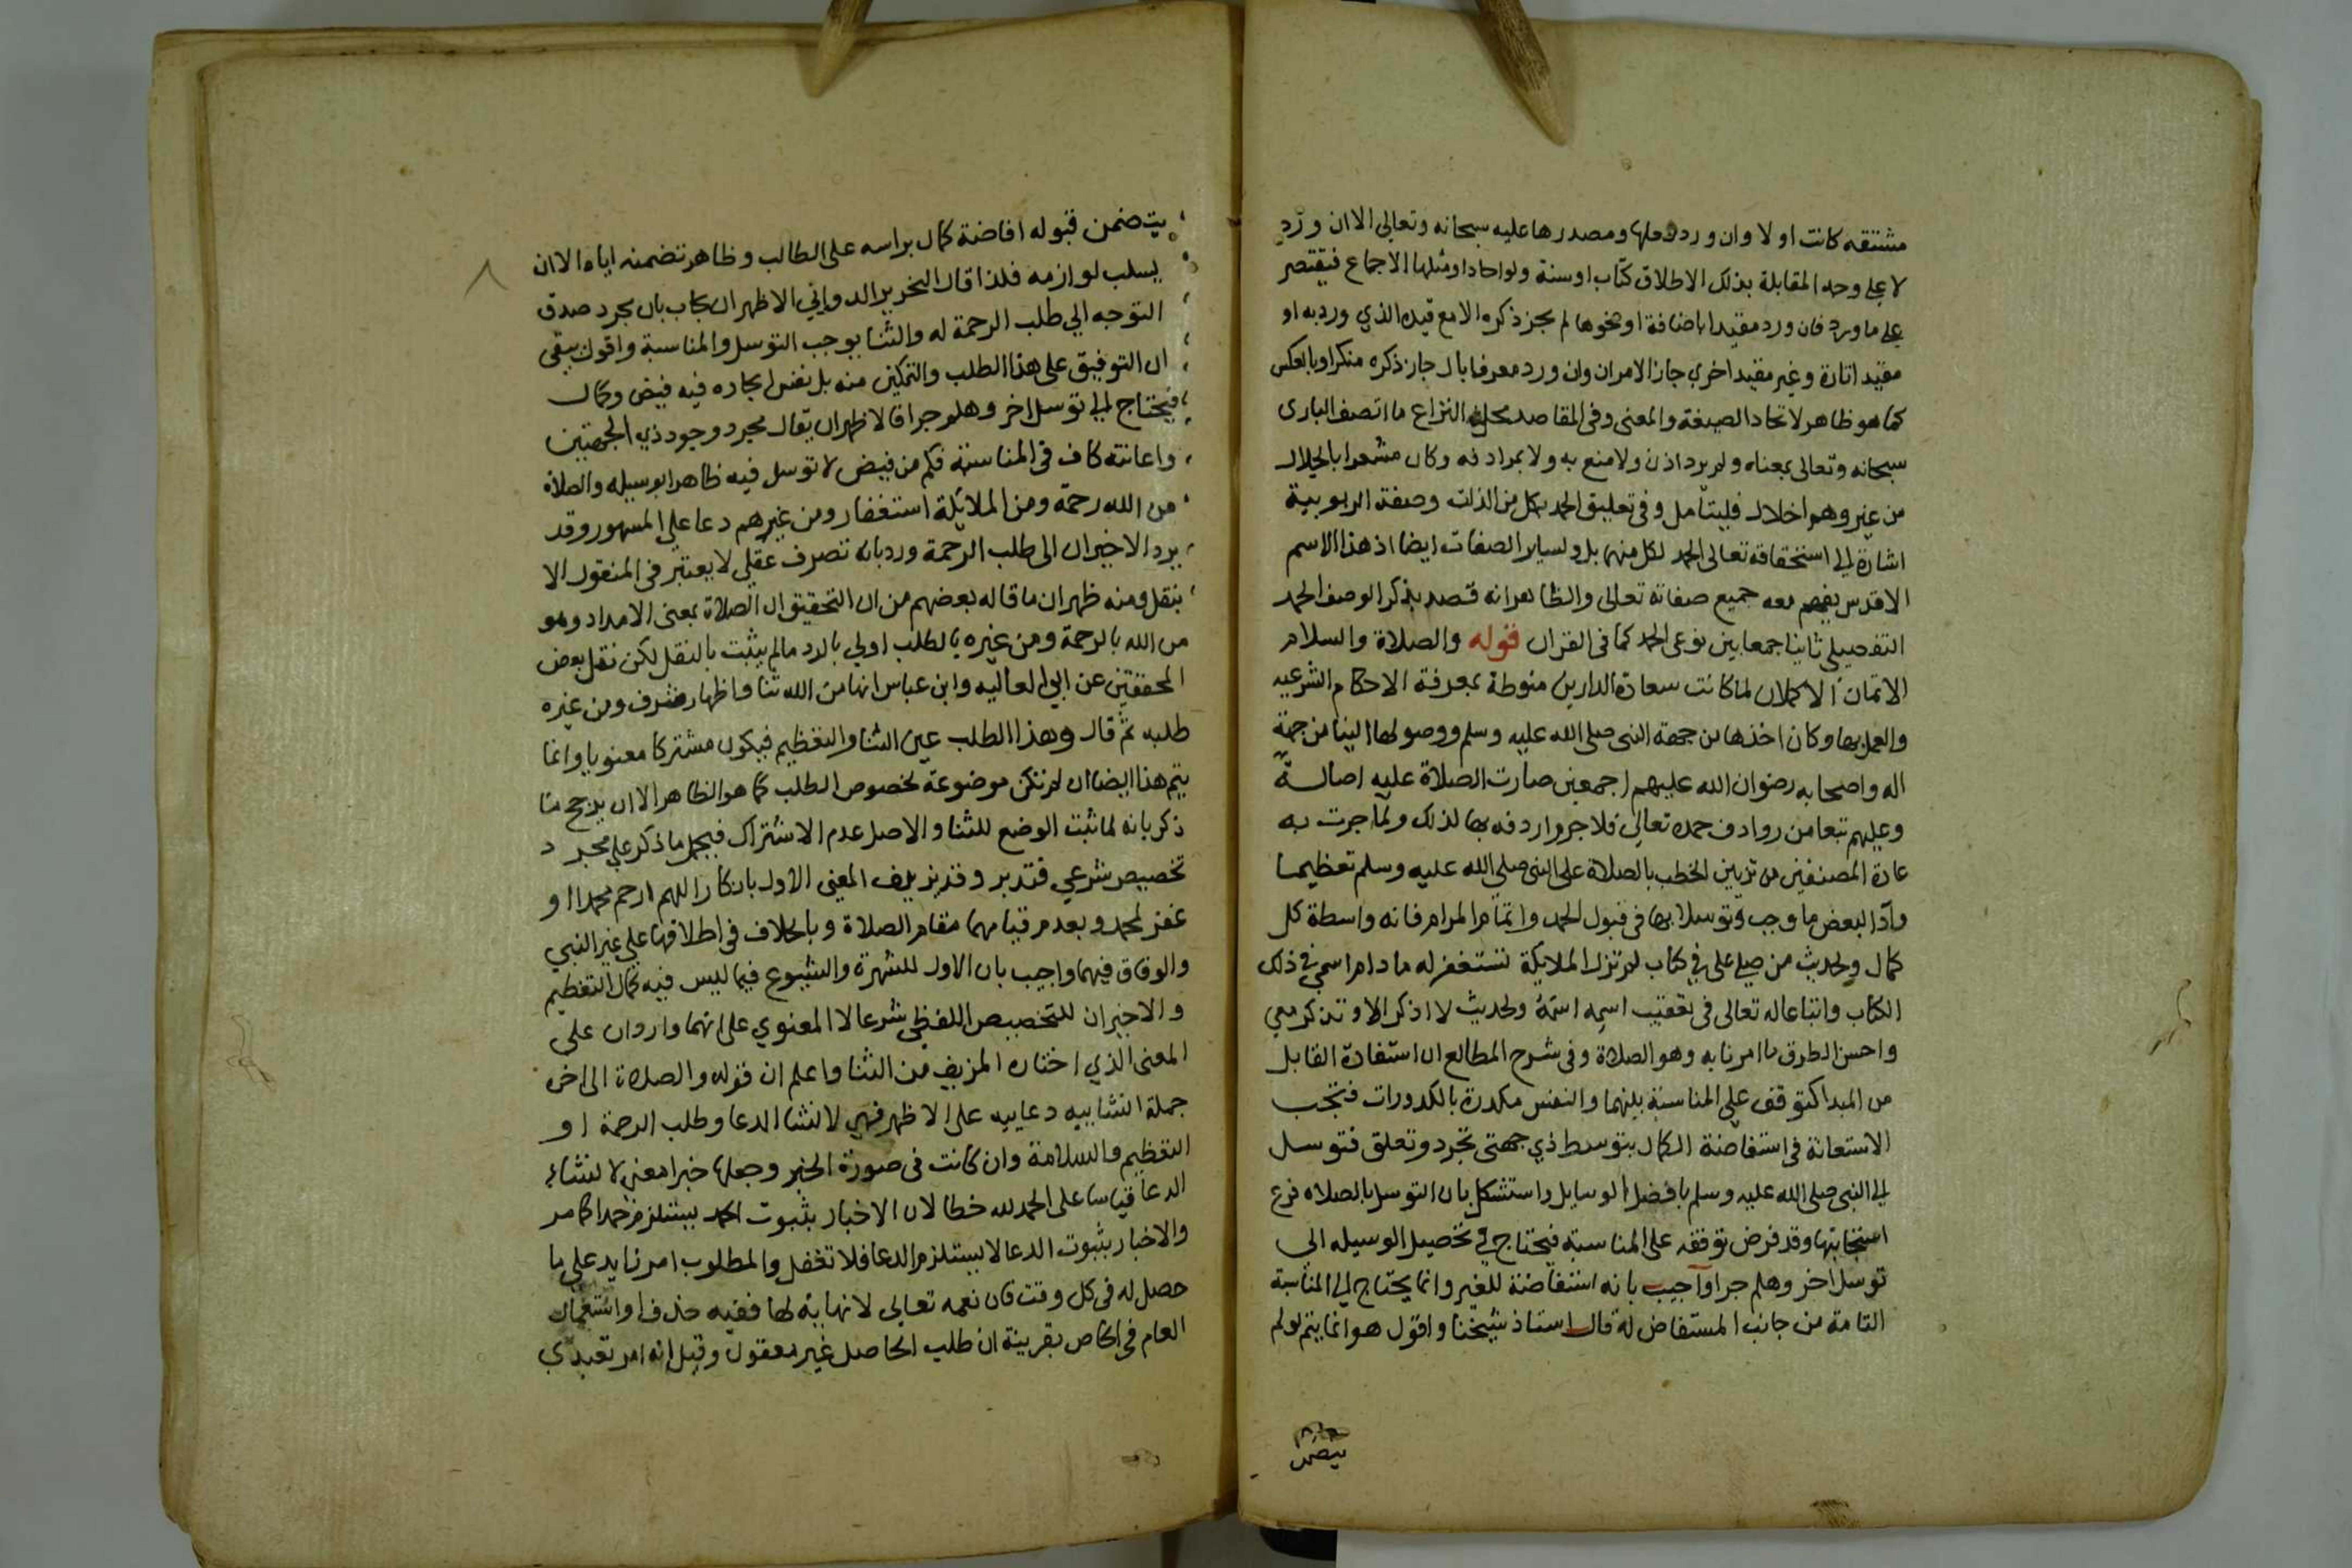 مشتقه كانت او لا وان ورد فعلها ومصدرها عليه سبحانه وتعالى الا ان ورد
لا على وجه المقابلة بذلك الاطلاق كتاب او سنة ولو احادا ومثلها الاجماع فيقتصر
على ما ورد فان ورد مقيدا باضافة او نحوها لم يجز ذكره الا مع قيده الذي ورد به او
مقيدا تارة وغير مقيد اخرى جاز الامران وان ورد معرفا بال جاز ذكره منكرا وبالعكس
كما هو ظاهر لاتحاد الصيغة والمعنى وفي المقاصد محل النزاع ما اتصف الباري
سبحانه وتعالى بمعناه ولم يرد اذن ولا منع به ولا بمرادفه وكان مشعرا بالجلال
من غير وهم اخلال فليتأمل وفي تعليق الحمد بكل من الذات وصفة الربوبية
اشارة الى استحقاقه تعالى الحمد لكل منهما بل ولساير الصفات ايضا اذ هذا الاسم
الاقدس يفهم معه جميع صفاته تعالى والظاهر انه قصد بذكر الوصف الحمد
التفصيلي ثانيا جمعا بين نوعي الحمد كما في القران قوله والصلاة والسلام
الاتمان الاكملان لما كانت سعادة الدارين منوطة بمعرفة الاحكام الشرعيه
والعمل بها وكان اخذها من جهة النبي صلى الله عليه وسلم ووصولها الينا من جهة
اله واصحابه رضوان الله عليهم اجمعين صارت الصلاة عليه اصالة
وعليهم تبعا من روادف حمده تعالى فلا جرم اردفه بها لذلك ولما جرت به
عادة المصنفين من تزيين الخطب بالصلاة على النبي صلى الله عليه وسلم تعظيما
وآدا لبعض ما وجب وتوسلا بها في قبول الحمد واتمام المرام فانه واسطة كل
كمال ولحديث من صلى علي في كتاب لم تزل الملايكة تستغفر له ما دام اسمي في ذلك
الكتاب واتباعا له تعالى في تعقيب اسمه اسمه ولحديث لا اذكر الا وتذكر معي
واحسن الطرق ما امرنا به وهو الصلاة وفي شرح المطالع ان استفادة القابل
من المبدا تتوقف على المناسبة بينهما والنفس مكدرة بالكدورات فتجب
الاستعانة في استفاضة الكمال بتوسط ذي جهتي تجرد وتعلق فتوسل
الى النبي صلى الله عليه وسلم بافضل الوسايل واستشكل بان التوسل بالصلاه فرع
استجابتها وقد فرض توقفه على المناسبة فيحتاج في تحصيل الوسيله الى
توسل اخر وهلم جرا واجيب بانه استفاضة للغير وانما يحتاج الى المناسبة
التامة من جانب المستفاض له قال استاذ شيخنا واقول هو انما يتم لو لم
يتضمن
يتضمن قبوله افاضة كمال براسه على الطالب وظاهر تضمنه اياه الا ان
يسلب لوازمه فلذا قال النحرير الدواني الاظهر ان يجاب بان مجرد صدق
التوجه الى طلب الرحمة له والثنا يوجب التوسل والمناسبة واقول يبقى
ان التوفيق على هذا الطلب والتمكين منه بل نفس ايجاده فيه فيض وكمال
فيحتاج الى توسل اخر وهلم جرا فالاظهر ان يقال مجرد وجود ذي الجهتين
واعانته كاف في المناسبة فكم من فيض لا توسل فيه ظاهرا بوسيله والصلاة
من الله رحمة ومن الملائكة استغفار ومن غيرهم دعا على المشهور وقد
يرد الاخيران الى طلب الرحمة ورد بانه تصرف عقلي لا يعتبر في المنقول الا
بنقل ومنه ظهر ان ما قاله بعضهم من ان التحقيق ان الصلاة بمعنى الامداد وهو
من الله بالرحمة ومن غيره بالطلب اولى بالرد ما لم يثبت بالنقل لكن نقل بعض
المحققين عن ابي العاليه وابن عباس انها من الله ثنا واظهار شرف ومن غيره
طلبه ثم قال وهذا الطلب عين الثنا والتعظيم فيكون مشتركا معنويا وانما
يتم هذا ايضا ان لم تكن موضوعة لخصوص الطلب كما هو الظاهر الا ان يرجح ما
ذكر بانه لما ثبت الوضع للثنا والاصل عدم الاشتراك فيحمل ما ذكر على مجرد
تخصيص شرعي فتدبر وقد يزيف المعنى الاول بانكار اللهم ارحم محمدا او
غفر لمحمد وبعدم قيامهما مقام الصلاة وبالخلاف في اطلاقها على غير النبي
والوفاق فيهما واجيب بان الاول للشهرة والشيوع فيما ليس فيه كمال التعظيم
والاخيران للتخصيص اللفظي شرعا لا المعنوي على انهما واردان على
المعنى الذي اختاره المزيف من الثنا واعلم ان قوله والصلاة الى اخره
جملة انشاييه دعاييه على الاظهر فهي لانشا الدعا وطلب الرحمة او
التعظيم والسلامة وان كانت في صورة الخبر وجعلها خبرا معنى لانشاء
الدعا قياسا على الحمد لله خطا لان الاخبار بثبوت الحمد يستلزم حمدا كما مر
والاخبار بثبوت الدعا لا يستلزم الدعا فلا تغفل والمطلوب امر زايد على ما
حصل له في كل وقت فان نعمه تعالى لا نهاية لها ففيه حذف او استعمال
العام في الخاص بقرينة ان طلب الحاصل غير معقول وقيل انه امر تعبدي
٨